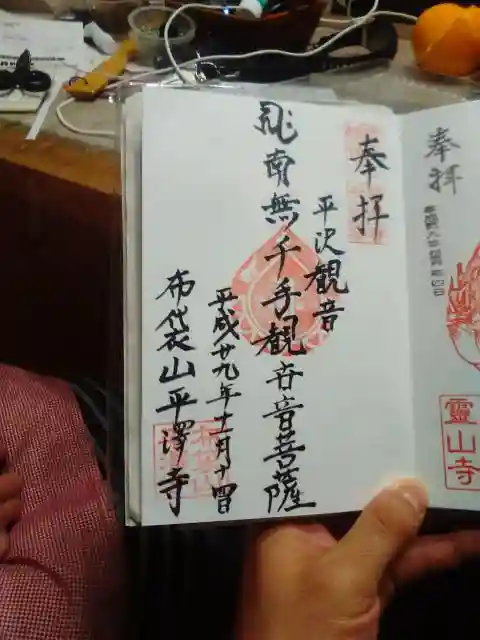 奉拝
靈山寺
奉拝
平沢観音
南無千手観世音菩薩
平成廿九年十一月十四日
布袋山平澤寺